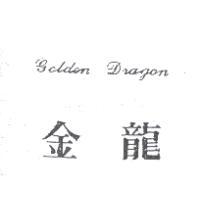 Golden Dragon
金龍